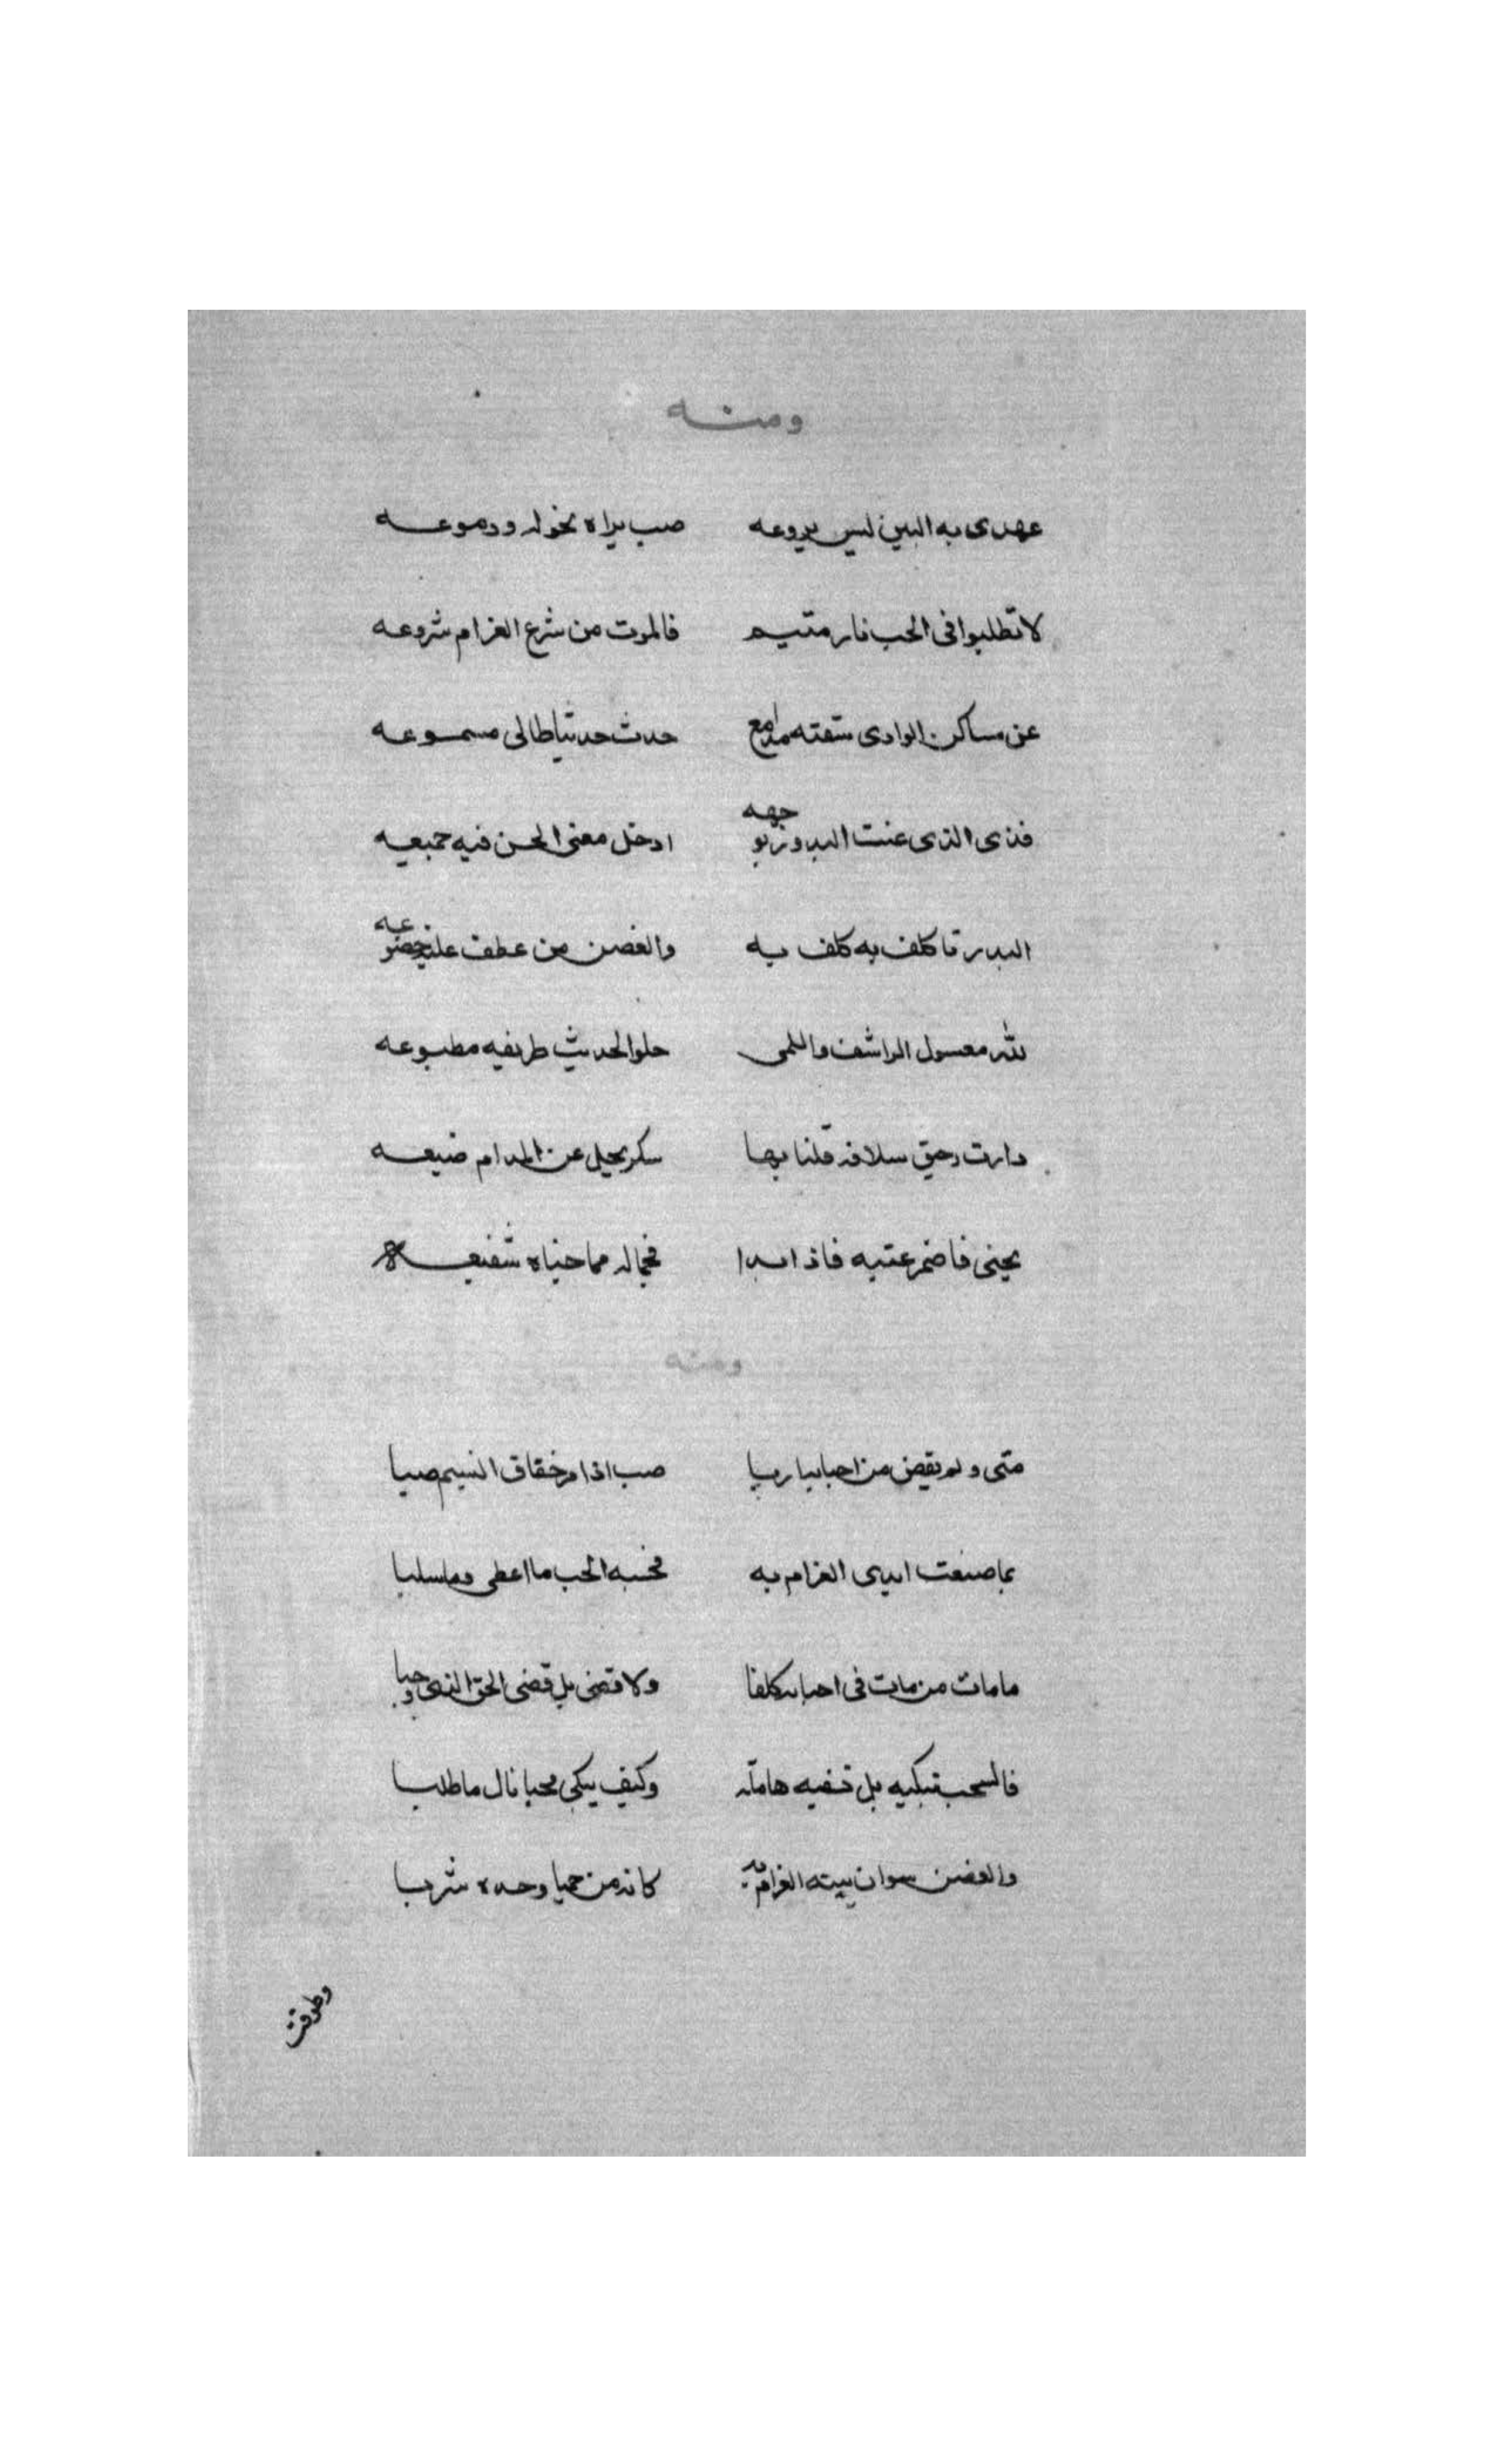 ومنه
عهدى به البين ليس يروعه صب براه نحوله ودموعه
لا تطلبوا فى الحب ثار متيم فالموت من شرع الغرام شروعه
عن ساكن الوادى سقته مدامع حدث حديثا طالى مسموعه
فدى الذى عنت البدور لوجهه اذ حل معنى الحسن فيه جميعه
البدر من كلف به كلف به والغصن من عطف عليه خضوعه
لله معسول المراشف واللمى حلو الحديث طريفه مطبوعه
دارت رحيق سلافه فلنا بها سكر يجل عن المدام صنيعه
يجنى فاضمر عتبه فاذا بدا فجماله مما جناه شفيعه
ومنه
متى ولم يقض من احبابه اربا صب اذا مر خفاق النسيم صبا
بما صنعت ايدى الغرام به فحسبه الحب ما اعطى وما سلبا
ما مات من مات فى احبابه كلفا ولا قضى بل قضى الحق الذى وجبا
فالسحب تبكيه بل تسقيه هاملة وكيف يبكى محبا نال ما طلبا
والغصن نشوان يثنيه الغرام به كانه من حميا وجده شربا
وطوقت